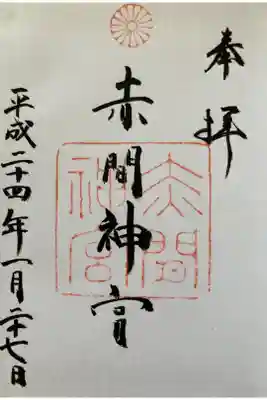 奉拝
赤間神宮
赤間神宮
平成二十四年一月二十七日